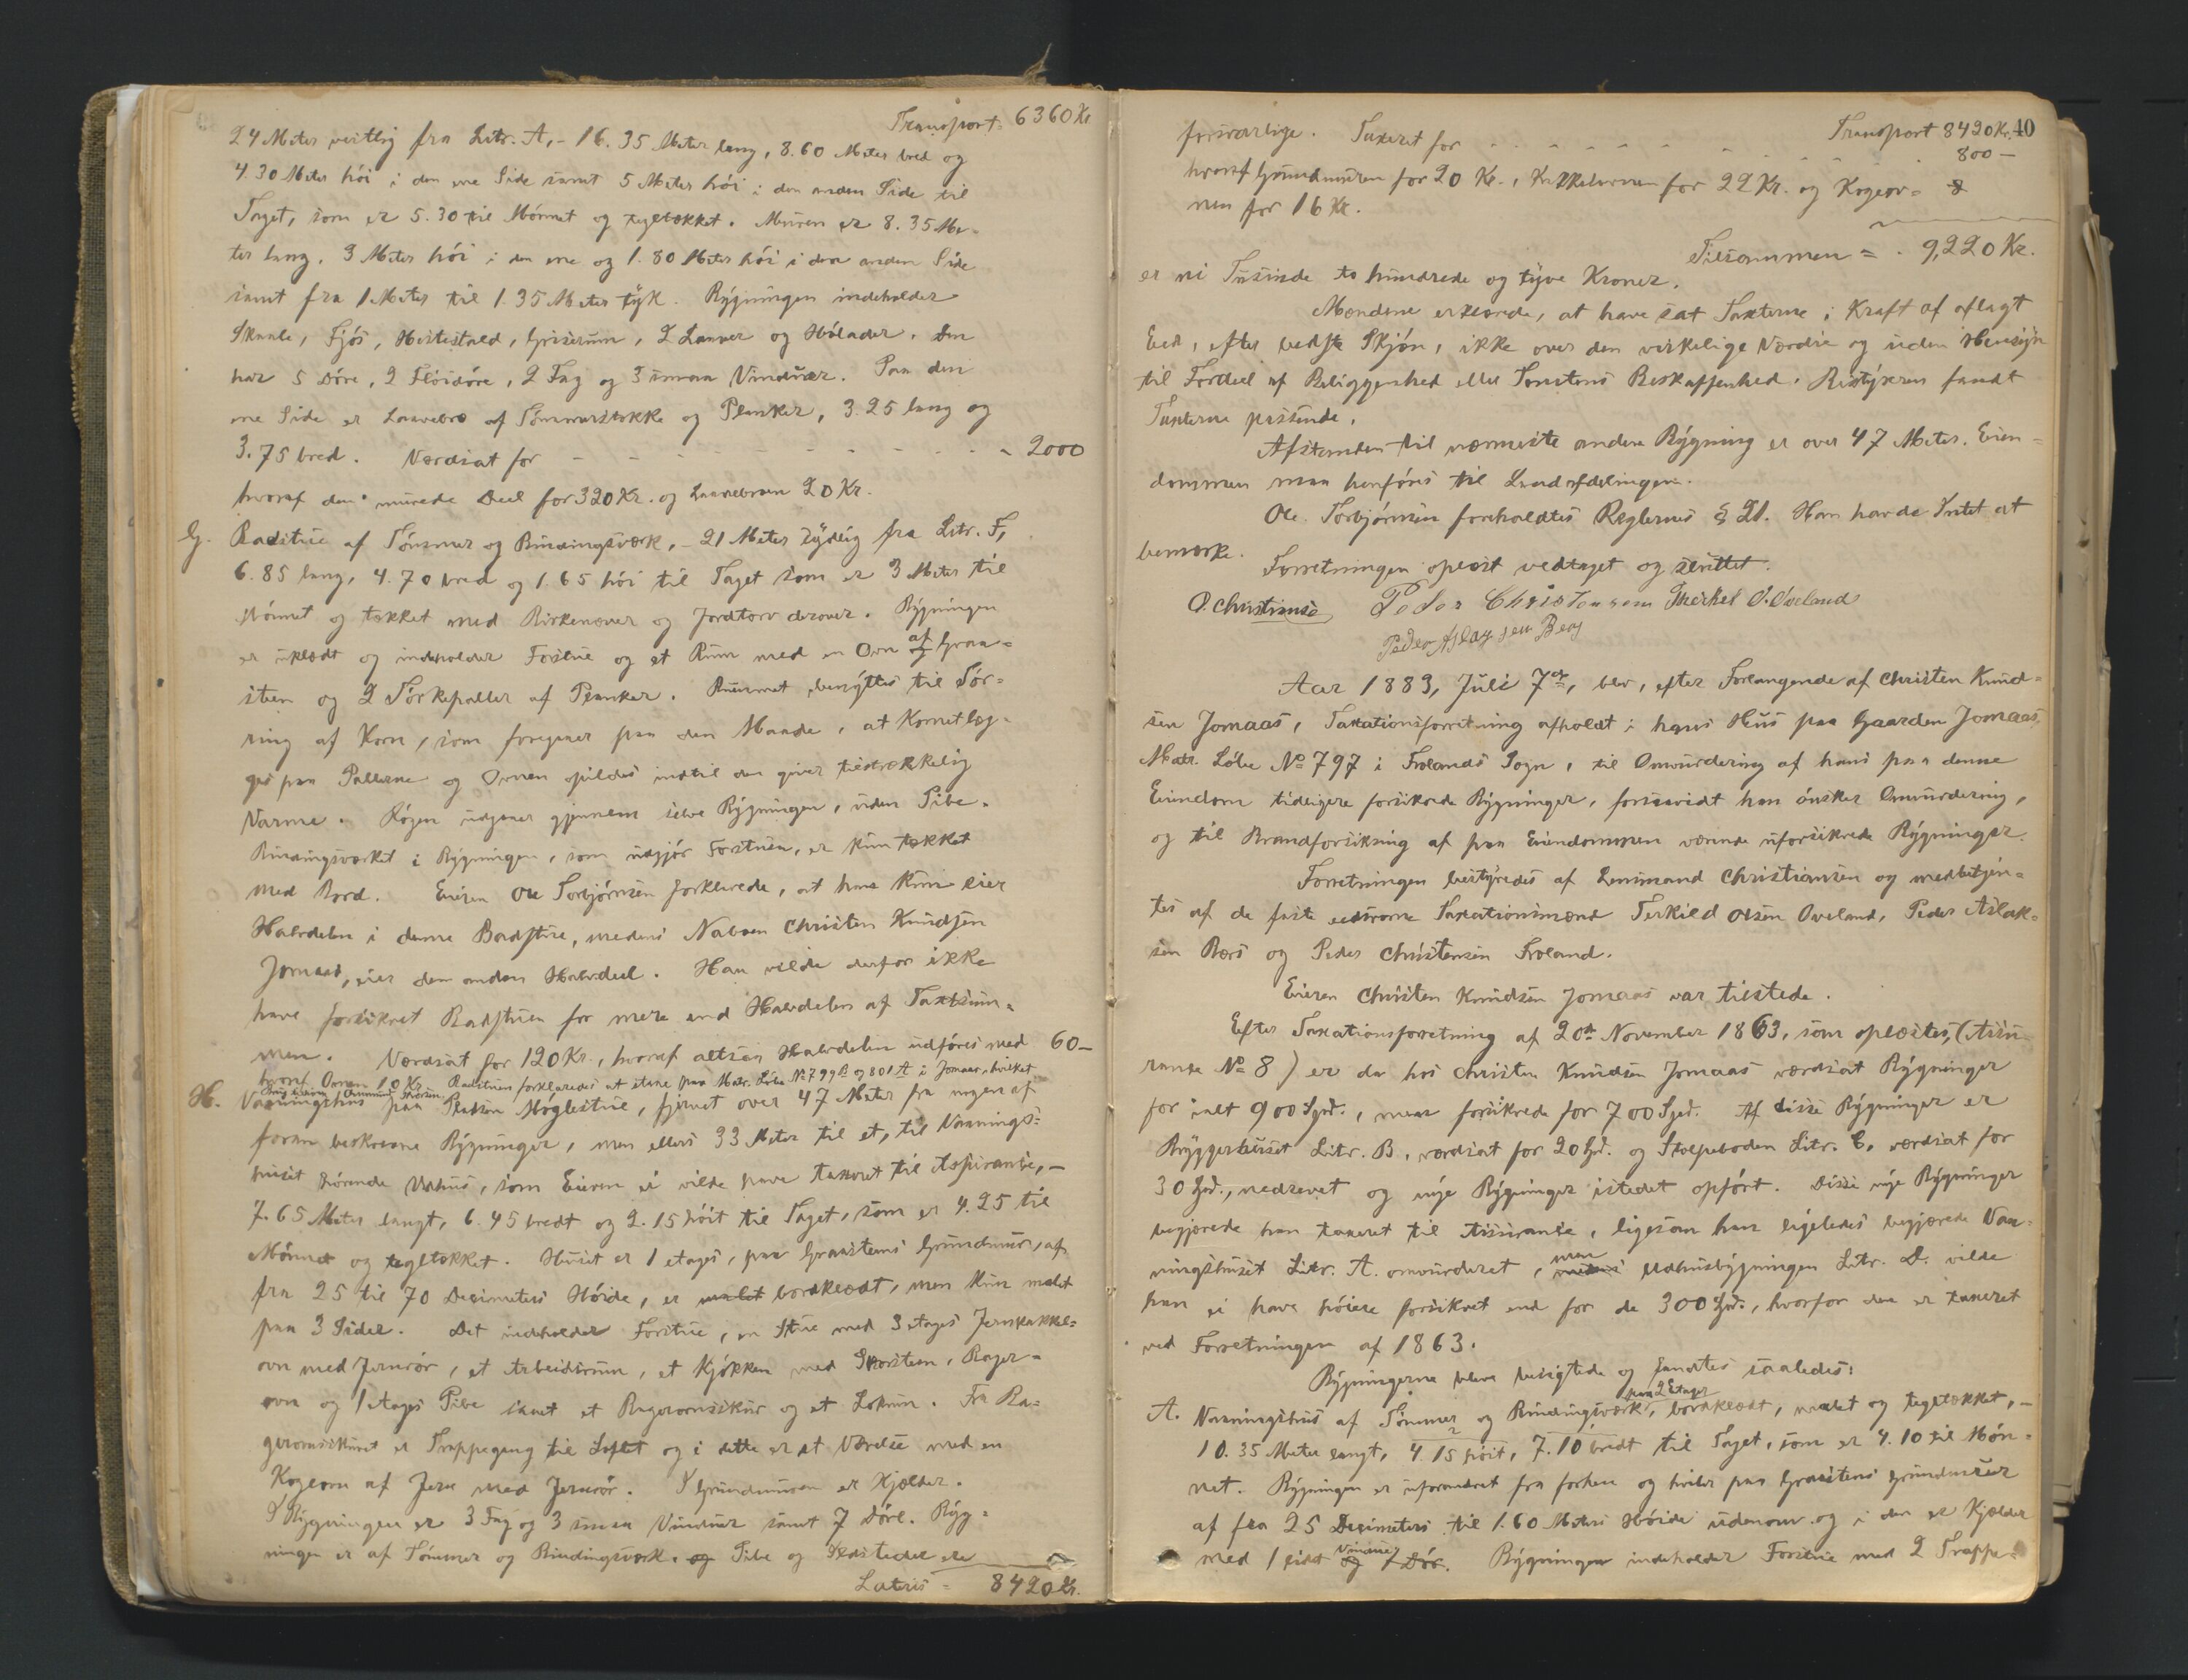 Transport = 6360 Kr
24 Meter vestlig fra Litr. A, - 16.35 Meter lang, 8.60 Meter bred og
4.30 Meter hói i den ene Side samt 5 Meter hói i den anden Side til
Taget, som er 5.30 til Mónnet og tegltækket. Muren er 8.35 Me-
ter lang, 3 Meter hói i den ene og 1.80 Meter hói i den anden Side
samt fra 1 Meter til 1.35 Meter tyk. Bygningen indeholder
Skaale, Fjós, Hestestald, Griserum, 2 Laaver og Hólader. Den
har 5 Dóre, 2 Flóidóre, 2 Fag og 3 smaa Vinduer. Paa den
ene Side er Laavebro af Tómmerstokke og Planker, 3.25 lang og
3.75 bred. Værdsat for - - - - - - - - - - 2000
hvoraf den murede Deel for 320 Kr. og Laavebroen 20 Kr.
G. Badstue af Tómmer og Bindingsværk, - 21 Meter sydlig fra Litr. F,
6.85 lang, 4.70 bred og 1.65 hói til Taget som er 3 Meter til
Mónnet og tækket med Birkenæver og Jordtorv derover. Bygningen
er uklædt og indeholder Forstue og et Rum med en Ovn af Graa-
steen og 2 Tórkepaller af Planker. Rummet benyttes til Tór-
ring af Korn, som foregaaer paa den Maade, at Kornet læg-
ges paa Pallerne og Ovnen opildes indtil den giver tilstrækkelig
Varme. Rógen udgaaer gjennem selve Bygningen, uden Pibe.
Bindingsværket i Bygningen, som udgjór Forstuen, er kun tækket
med Bord. Eieren Ole Torbjórnsen forklarede, at han kun eier
Halvdelen i denne Badstue, medens Naboen Christen Knudsen
Jomaas, eier den anden Halvdeel. Han vilde derfor ikke
have forsikret Badstuen for mere end Halvdelen af Taxtsum-
men. Værdsat for 120 Kr., hvoraf altsaa Halvdelen udfóres med 60 -
hvoraf Ovnen 10 Kr. Badstuen forklaredes at staae paa Matr. Löbe No 799 og 801 i Jomaas, hvilket
H. Vaaningshus paa Pladsen Móglestue, fjernet over 47 Meter fra nogen af
foran beskrevne Bygninger, men ellers 33 Meter til et, til Vaanings-
huset hórende Udhus, som Eieren ei vilde have taxeret til Assurance, -
7.65 Meter langt, 6.45 bredt og 2.15 hóit til Taget, som er 4.25 til
Mónnet og tegltækket. Huset er 1 etages, paa Graasteens Grundmur, af
fra 25 til 70 Decimeters Hóide, er malet bordklædt, men kun malet
paa 3 Sider. Det indeholder Forstue, en Stue med 3 etages Jernkakkel-
ovn med Jernrór, et Arbeidsrum, et Kjókken med Skorsteen, Bager-
ovn og 1 etages Pibe samt et Bagerovnsskur og et Loknum. Fra Ba-
gerovnsskuret er Trappegang til Loftet og i dette er et Værelse med en
Kogeovn af Jern med Jernrór. I Grundmuren er Kjælder.
I Bygningen er 3 Fag og 3 smaa Vinduer samt 7 Dóre. Byg-
ningen er af Tómmer og Bindingsværk. og Pibe og Ildsteder ere
Lateris = 8420 Kr.
Transport 8420 Kr. 40
forsvarlige. Taxeret for - - - - - - - - 800 -
hvoraf Grundmuren for 20 Kr., Kakkelovnen for 22 Kr. og Kogeov-
nen for 16 Kr.
Tilsammen = 9,220 Kr.
er ni Tusinde to hundrede og tyve Kroner.
Mændene erklærede, at have sat Taxterne i Kraft af aflagt
Eed, efter bedste Skjón, ikke over den virkelige Værdie og uden Hensyn
til Fordeel af Beliggenhed eller Tomtens Beskaffenhed. Bestyreren fandt
Taxterne passende.
Afstanden til nærmeste anden Bygning er over 47 Meter. Eien-
dommen maa henfóres til Landafdelingen.
Ole Torbjórnsen foreholdtes Reglernes § 21. Han havde Intet at
bemærke.
Forretningen oplæst vedtaget og sluttet.
O. Christiansen Peder Christensen Therkel O. Oveland
Peder Aslaksen Berg
Aar 1883, Juli 7de, blev, efter Forlangende af Christen Knud-
sen Jomaas, Taxationsforretning afholdt i hans Hus paa Gaarden Jomaas,
Matr. Löbe No 797 i Frolands Sogn, til Omvurdering af hans paa denne
Eiendom tidligere forsikrede Bygninger, forsaavidt han ónsker Omvurdering,
og til Brandforsikring af paa Eiendommen værende uforsikrede Bygninger.
Forretningen bestyredes af Lensmand Christiansen og medbetjen-
tes af de faste eedsvorne Taxationsmænd Terkild Olsen Oveland, Peder Aslak-
sen Bærs og Peder Christensen Froland.
Eieren Christen Knudsen Jomaas var tilstede.
Efter Taxationsforretning af 20de November 1863, som oplæstes, (Assu-
rance No 8) er der hos Christen Knudsen Jomaas værdsat Bygninger
for ialt 900 Spd., men forsikrede for 700 Spd. Af disse Bygninger er
Bryggerhuset Litr. B, værdsat for 20 Spd. og Stolpeboden Litr. C, værdsat for
30 Spd., nedrevet og nye Bygninger istedet opfórt. Disse nye Bygninger
begjærede han taxeret til Assurance, ligesom han ligeledes begjærede Vaa-
ningshuset Litr. A. omvurderet, men Udhusbygningen Litr. D. vilde
han ei have hóiere forsikret end for de 300 Spd., hvorfor den er taxeret
ved Forretningen af 1863.
Bygningerne bleve besigtede og fandtes saaledes:
A. Vaaningshus af Tómmer og Bindingsværk, paa 2 Etager bordklædt, malet og tegltækket, -
10.35 Meter langt, 4.15 hóit, 7.10 bredt til Taget, som er 4.10 til Món-
net. Bygningen er uforandret fra forhen og hviler paa Graasteens Grundmur
af fra 25 Decimeters til 1.60 Meters Hóide udenom og i den er Kjælder
med 1 lidet Vindue og 1 Dór. Bygningen indeholder Forstue med 2 Trappe-